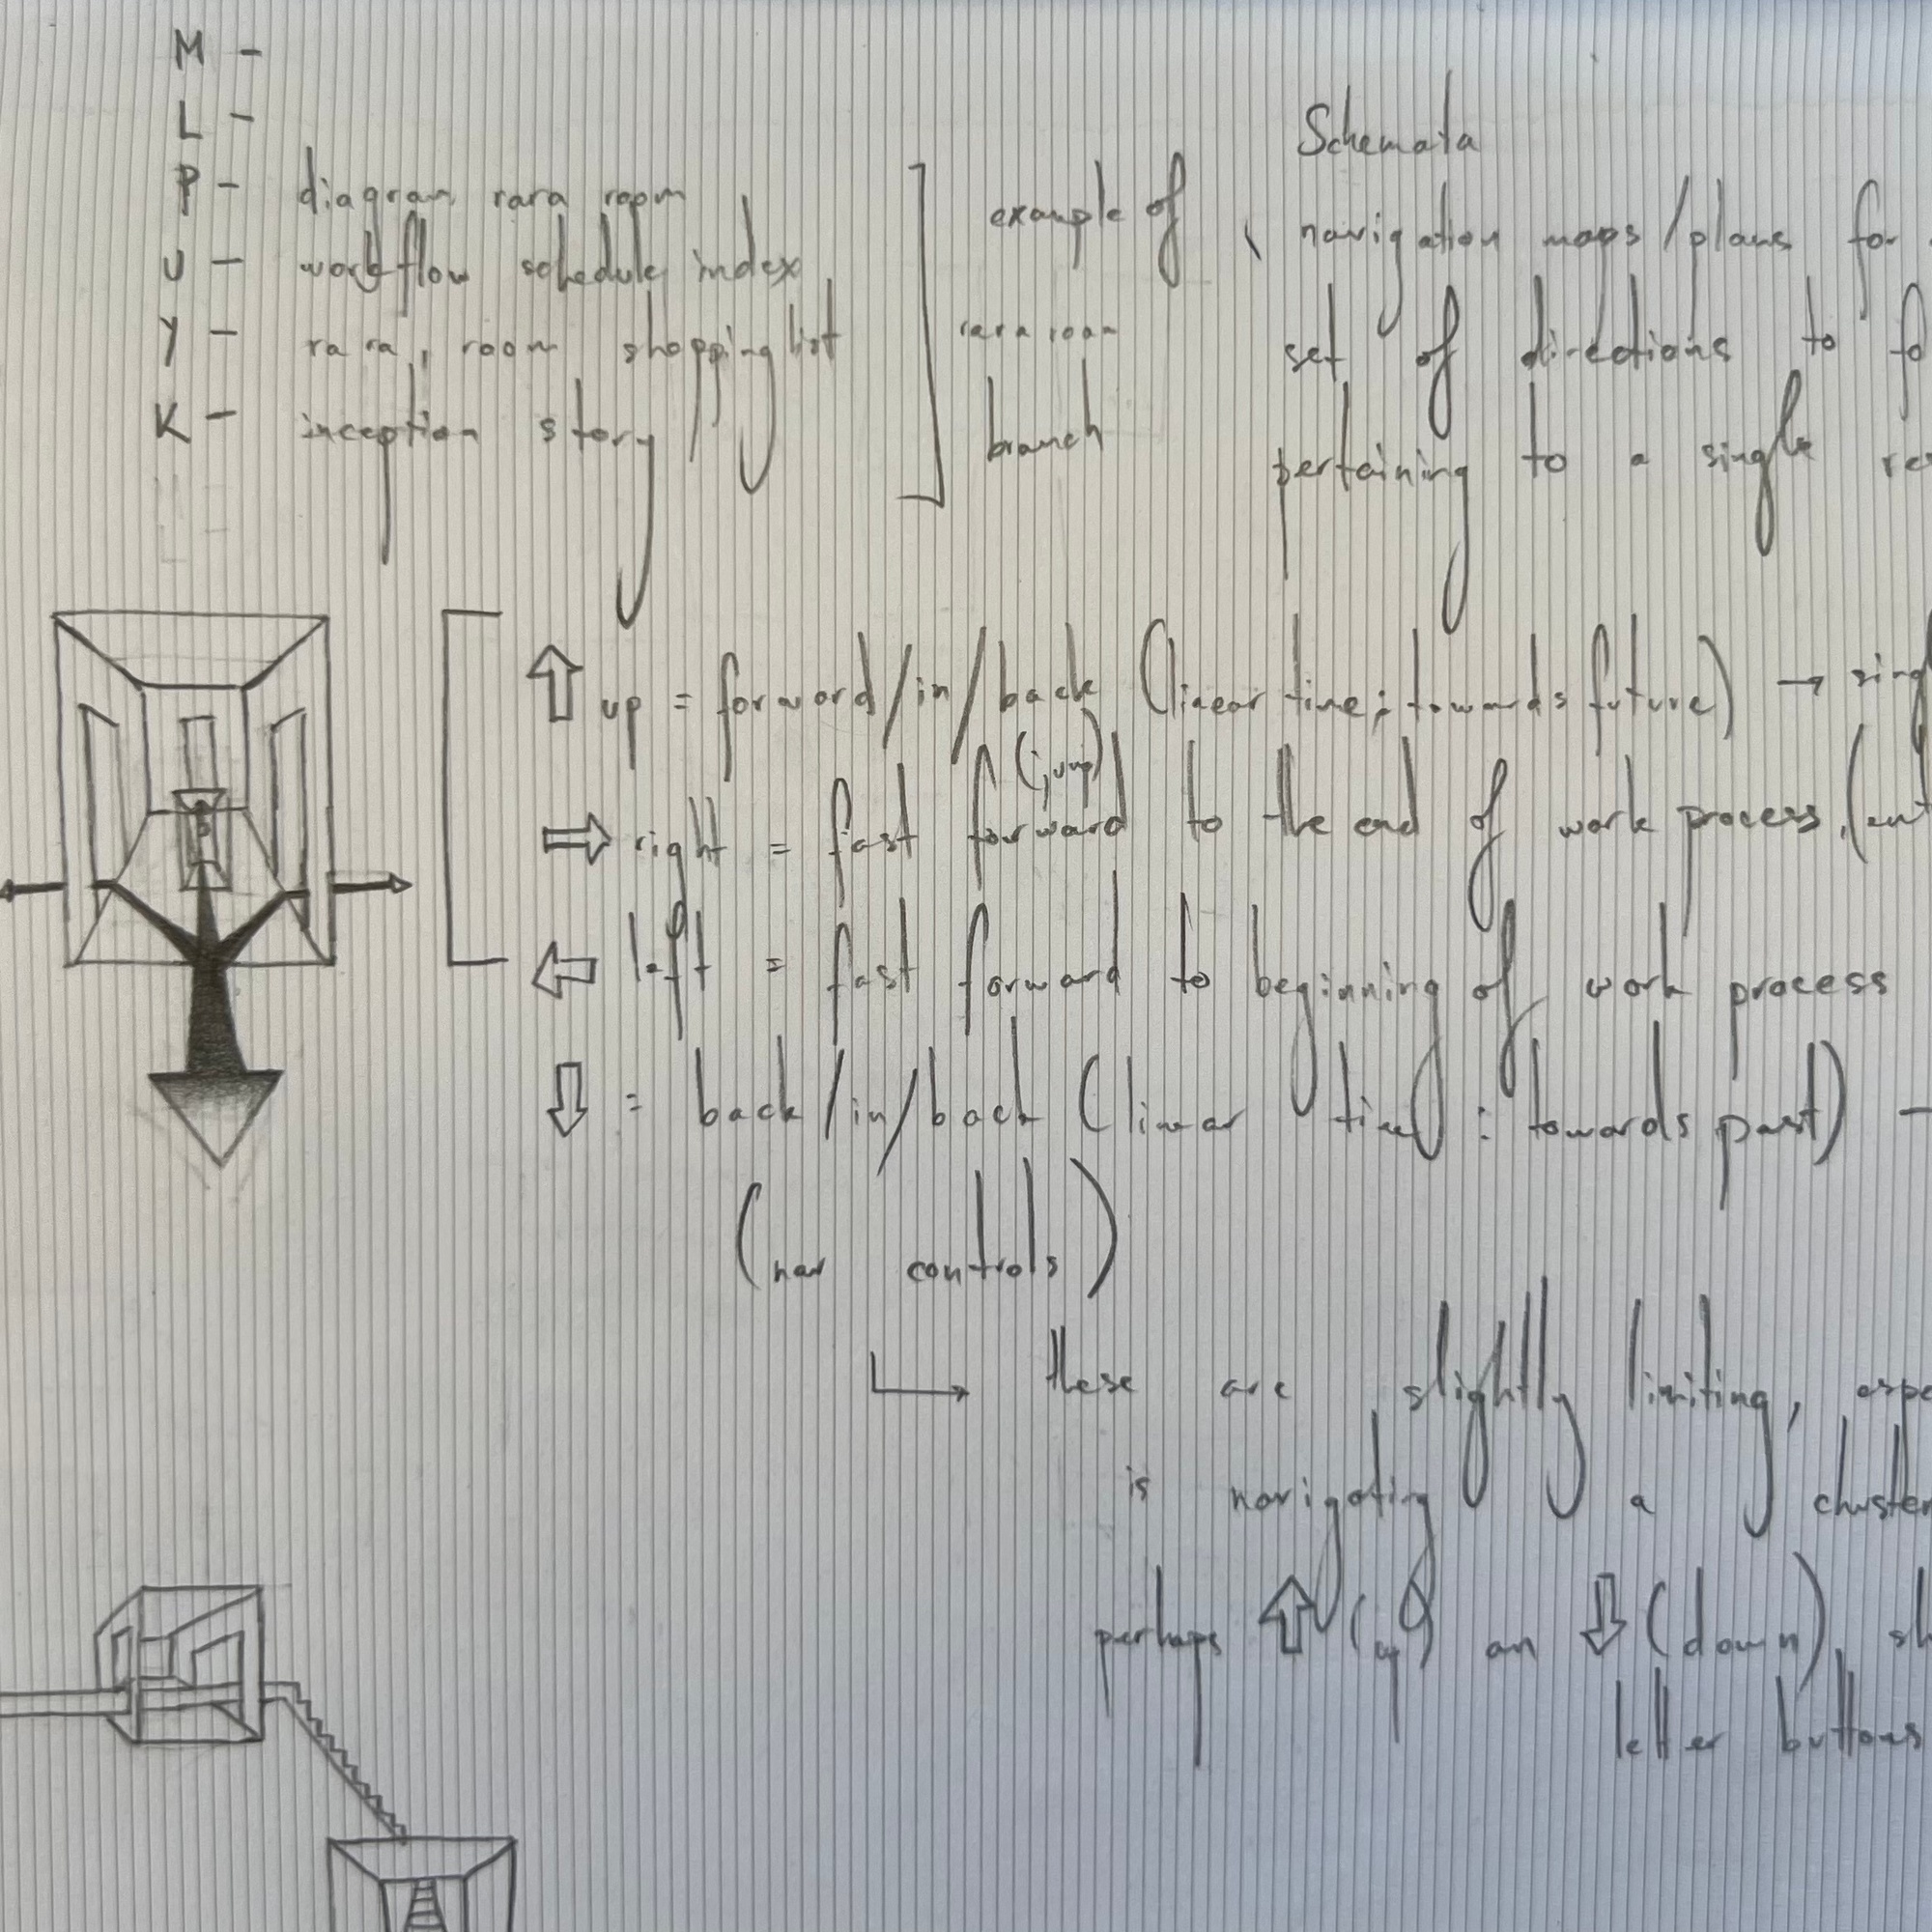 M -
L -
P - diagram rara room
U - workflow schedule index
Y - rara room shopping list
K - inception story
example of
rara room
branch
Schemata
navigation maps/plans for
set of directions to fo
pertaining to a single
⇧ up = forward/in/back (linear time; towards future) → sing
(jump)
⇨ right = fast forward to the end of work process, (ent
⇦ left = fast forward to beginning of work process
⇩ = back/in/back (linear time : towards past) -
(nav controls)
these are slightly limiting, espe
is navigating a cluster
perhaps ⇧ (up) an ⇩ (down), sh
letter buttons